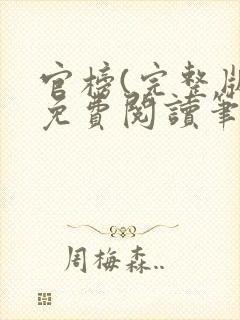 官榜(完整版
免費閱讀筆
周梅森..